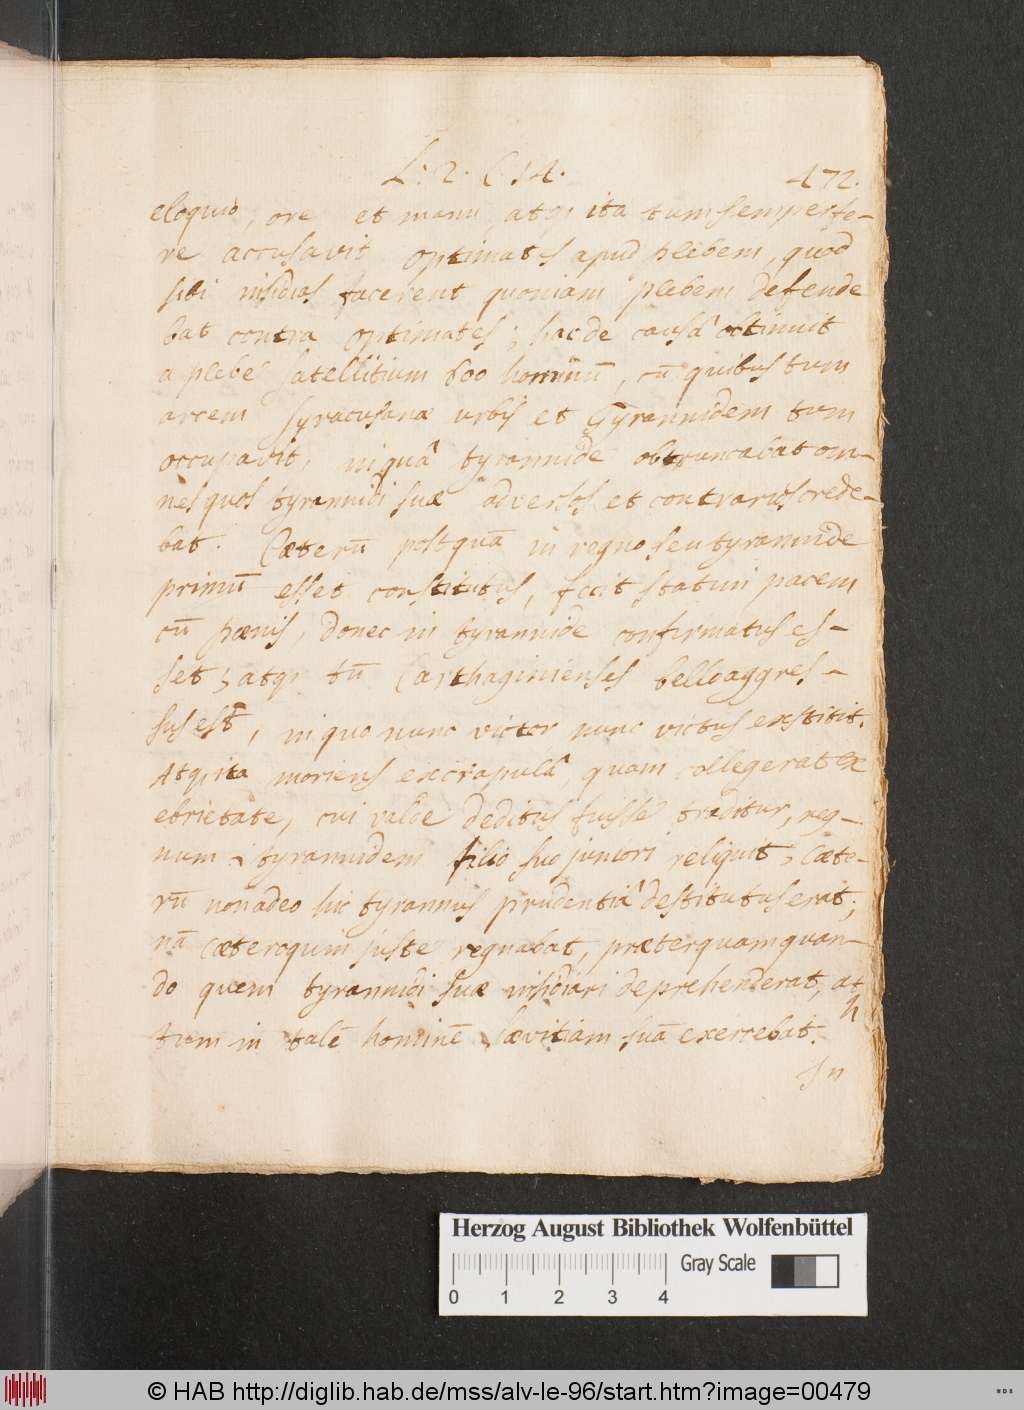 L: 2. C 14. 472.
eloquio, ore et manu, atqȝ ita tum semper fe-
re accusavit optimates apud plebem, quod
sibi insidias facerent quoniam plebem defende
bat contra optimates; hac de causâ obtinuit
a plebe satellitium 600 hominū, cū quibus tum
arcem syracusanæ urbis et Tyrannidem tum
occupavit, in quâ tyrannide obtruncabat om-
nes quos tyrannidi suæ adversos et contrarios crede-
bat. Cæterū postquā in regno seu tyrannide
primū esset constitutus, fecit statim pacem
cū pœnis, donec in tyrannide confirmatus es-
set, atqȝ tū Carthaginienses bello aggres-
sus est, in quo nunc victor nunc victus exstitit.
Atqȝ ita moriens ex crapulâ, quam collegerat ex
ebrietate, cui valde deditus fuisse traditur, reg-
num & tyrannidem filio suo juniori reliquit, Cæte-
rū non adeo hic tyrannus prudentiâ destitutus erat;
nā cæteroquin juste regnabat, præterquam quan-
do quem tyrannidi suæ insidiari deprehenderat, at
tum in talē hominē sævitiam suā exercebat.
In
Herzog August Bibliothek Wolfenbüttel
0 1 2 3 4
Gray Scale
© HAB http://diglib.hab.de/mss/alv-le-96/start.htm?image=00479